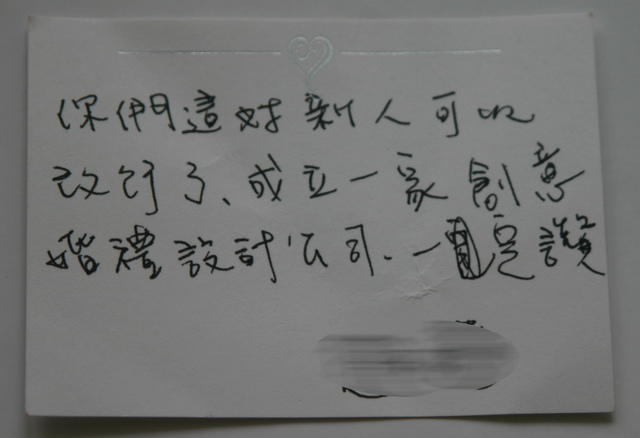 你們這對新人可以
改行了、成立一家創意
婚禮設計公司.一定讚